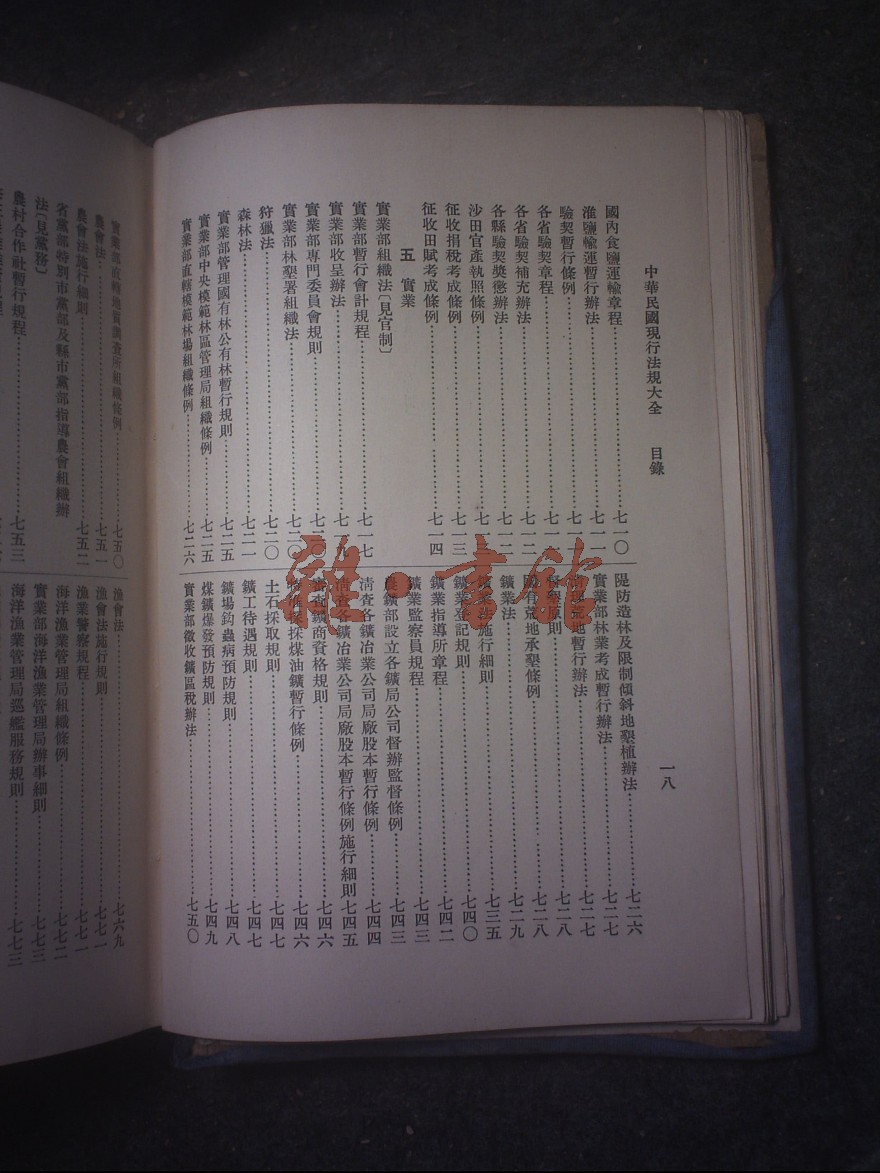 中華民國現行法規大全 目錄 一八
國內食鹽運輸章程 七一〇
淮鹽輸運暫行辦法 七一一
驗契暫行條例 七一
各省驗契章程 七一
各省驗契補充辦法 七一二
各縣驗契獎懲辦法 七一二
沙田官產執照條例 七一
征收捐稅考成條例 七一三
征收田賦考成條例 七一四
五 實業
實業部組織法〔見官制〕
實業部暫行會計規程 七一七
實業部收呈辦法 七一九
實業部專門委員會規則
實業部林墾署組織法
狩獵法 七二〇
森林法 七二一
實業部管理國有林公有林暫行規則 七二五
實業部中央模範林區管理局組織條例 七二五
實業部直轄模範林場組織條例 七二六
隄防造林及限制傾斜地墾植辦法 七二六
實業部林業考成暫行辦法 七二七
清理荒地暫行辦法 七二七
督墾原則 七二八
國有荒地承墾條例 七二八
鑛業法 七二九
鑛業法施行細則 七三五
鑛業登記規則 七四〇
鑛業指導所章程 七四二
鑛業監察員規程 七四三
農鑛部設立各鑛局公司督辦監督條例 七四三
清查各鑛冶業公司局廠股本暫行條例 七四四
清查各鑛冶業公司局廠股本暫行條例施行細則 七四五
審查鑛商資格規則 七四六
特准探採煤油鑛暫行條例 七四六
土石採取規則 七四七
鑛工待遇規則 七四七
鑛場鈎蟲病預防規則 七四八
煤鑛爆發預防規則 七四九
實業部徵收鑛區稅辦法 七五〇
實業部直轄地質調查所組織條例 七五〇
農會法 七五一
農會法施行細則 七五二
省黨部特別市黨部及縣市黨部指導農會組織辦
法〔見黨務〕
農村合作社暫行規程 七五三
漁會法 七六九
漁會法施行規則 七七一
漁業警察規程 七七一
海洋漁業管理局組織條例 七七二
實業部海洋漁業管理局辦事細則 七七三
海洋漁業管理局巡艦服務規則 七七三
雜·書館